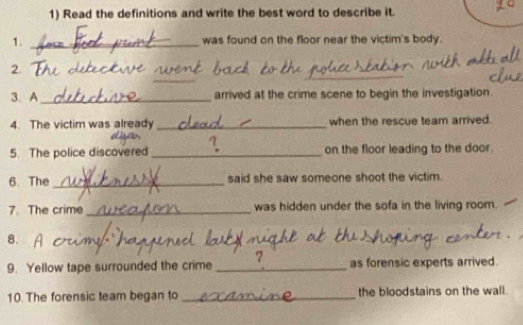 1) Read the definitions and write the best word to describe it.
1. Foot print was found on the floor near the victim's body.
2. The detective went back to the police station with all clue
3. A detective arrived at the crime scene to begin the investigation.
4. The victim was already dead when the rescue team arrived.
5. The police discovered ? on the floor leading to the door.
6. The witness said she saw someone shoot the victim.
7. The crime weapon was hidden under the sofa in the living room.
8. A crime happened last night at the shoping center.
9. Yellow tape surrounded the crime ? as forensic experts arrived.
10. The forensic team began to examine the bloodstains on the wall.